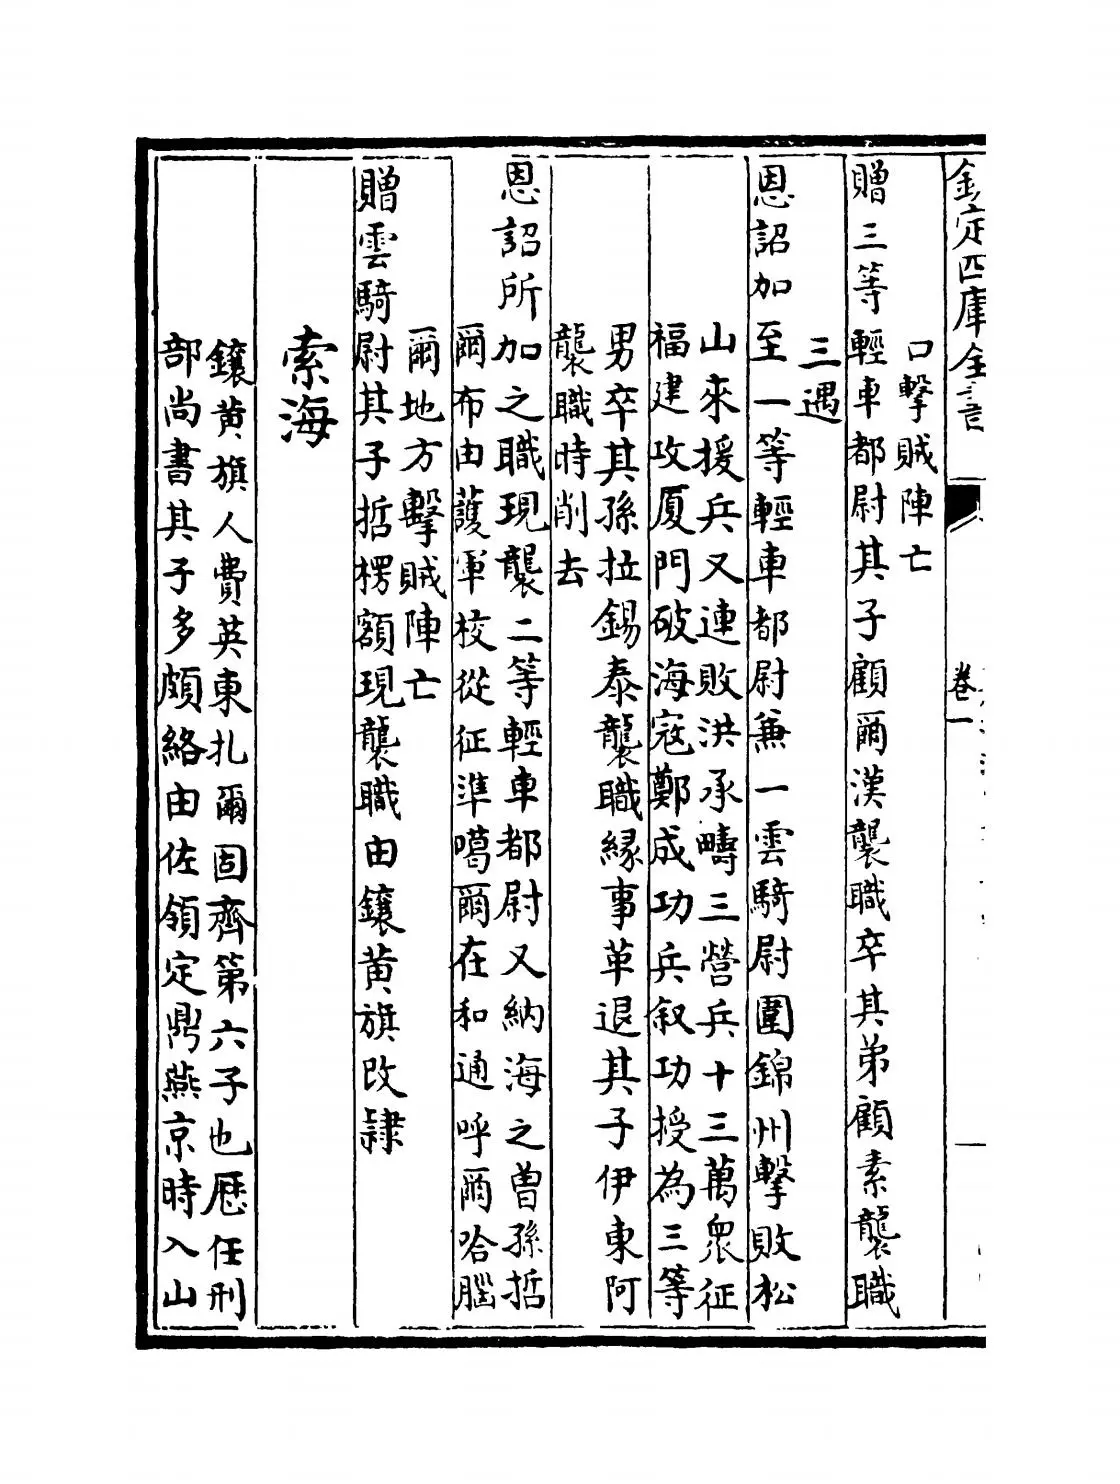 欽定四庫全書
卷一
口擊賊陣亡
贈三等輕車都尉其子顧爾漢襲職卒其弟顧素襲職
三遇
恩詔加至一等輕車都尉兼一雲騎尉圍錦州擊敗松
山來援兵又連敗洪承疇三營兵十三萬衆征
福建攻厦門破海寇鄭成功兵叙功授為三等
男卒其孫拉錫泰襲職縁事革退其子伊東阿
襲職時削去
恩詔所加之職現襲二等輕車都尉又納海之曽孫哲
爾布由䕶軍校從征準噶爾在和通呼爾哈腦
爾地方擊賊陣亡
贈雲騎尉其子哲楞額現襲職由鑲黄旗改隷
索海
鑲黄旗人費英東扎爾固齊第六子也歴任刑
部尚書其子多頗絡由佐領定鼎燕京時入山